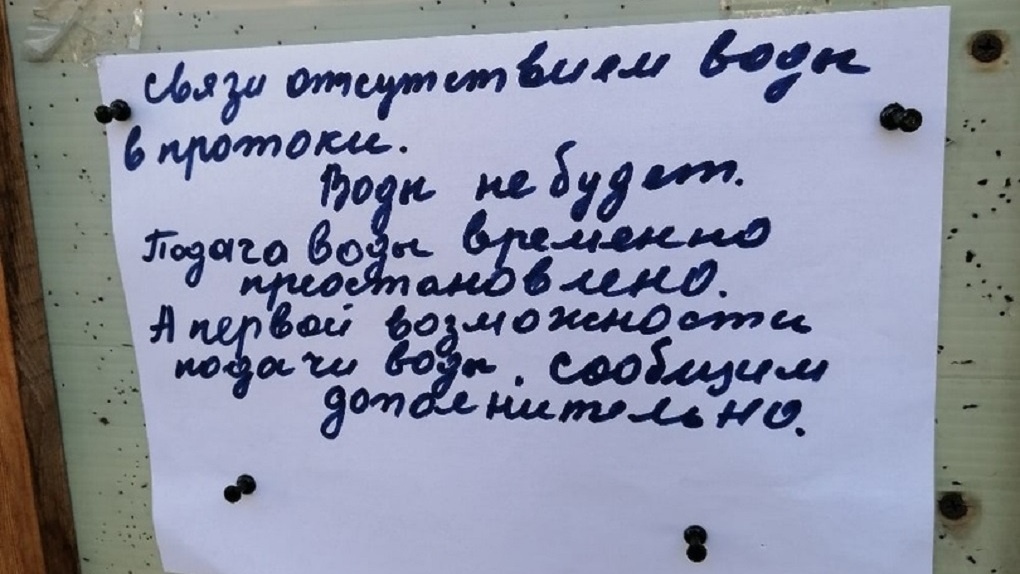 связи отсутствием воды
в протоки.
Воды не будет.
Подача воды временно
преостановлено.
А первой возможности
подачи воды. сообщим
дополнительно.